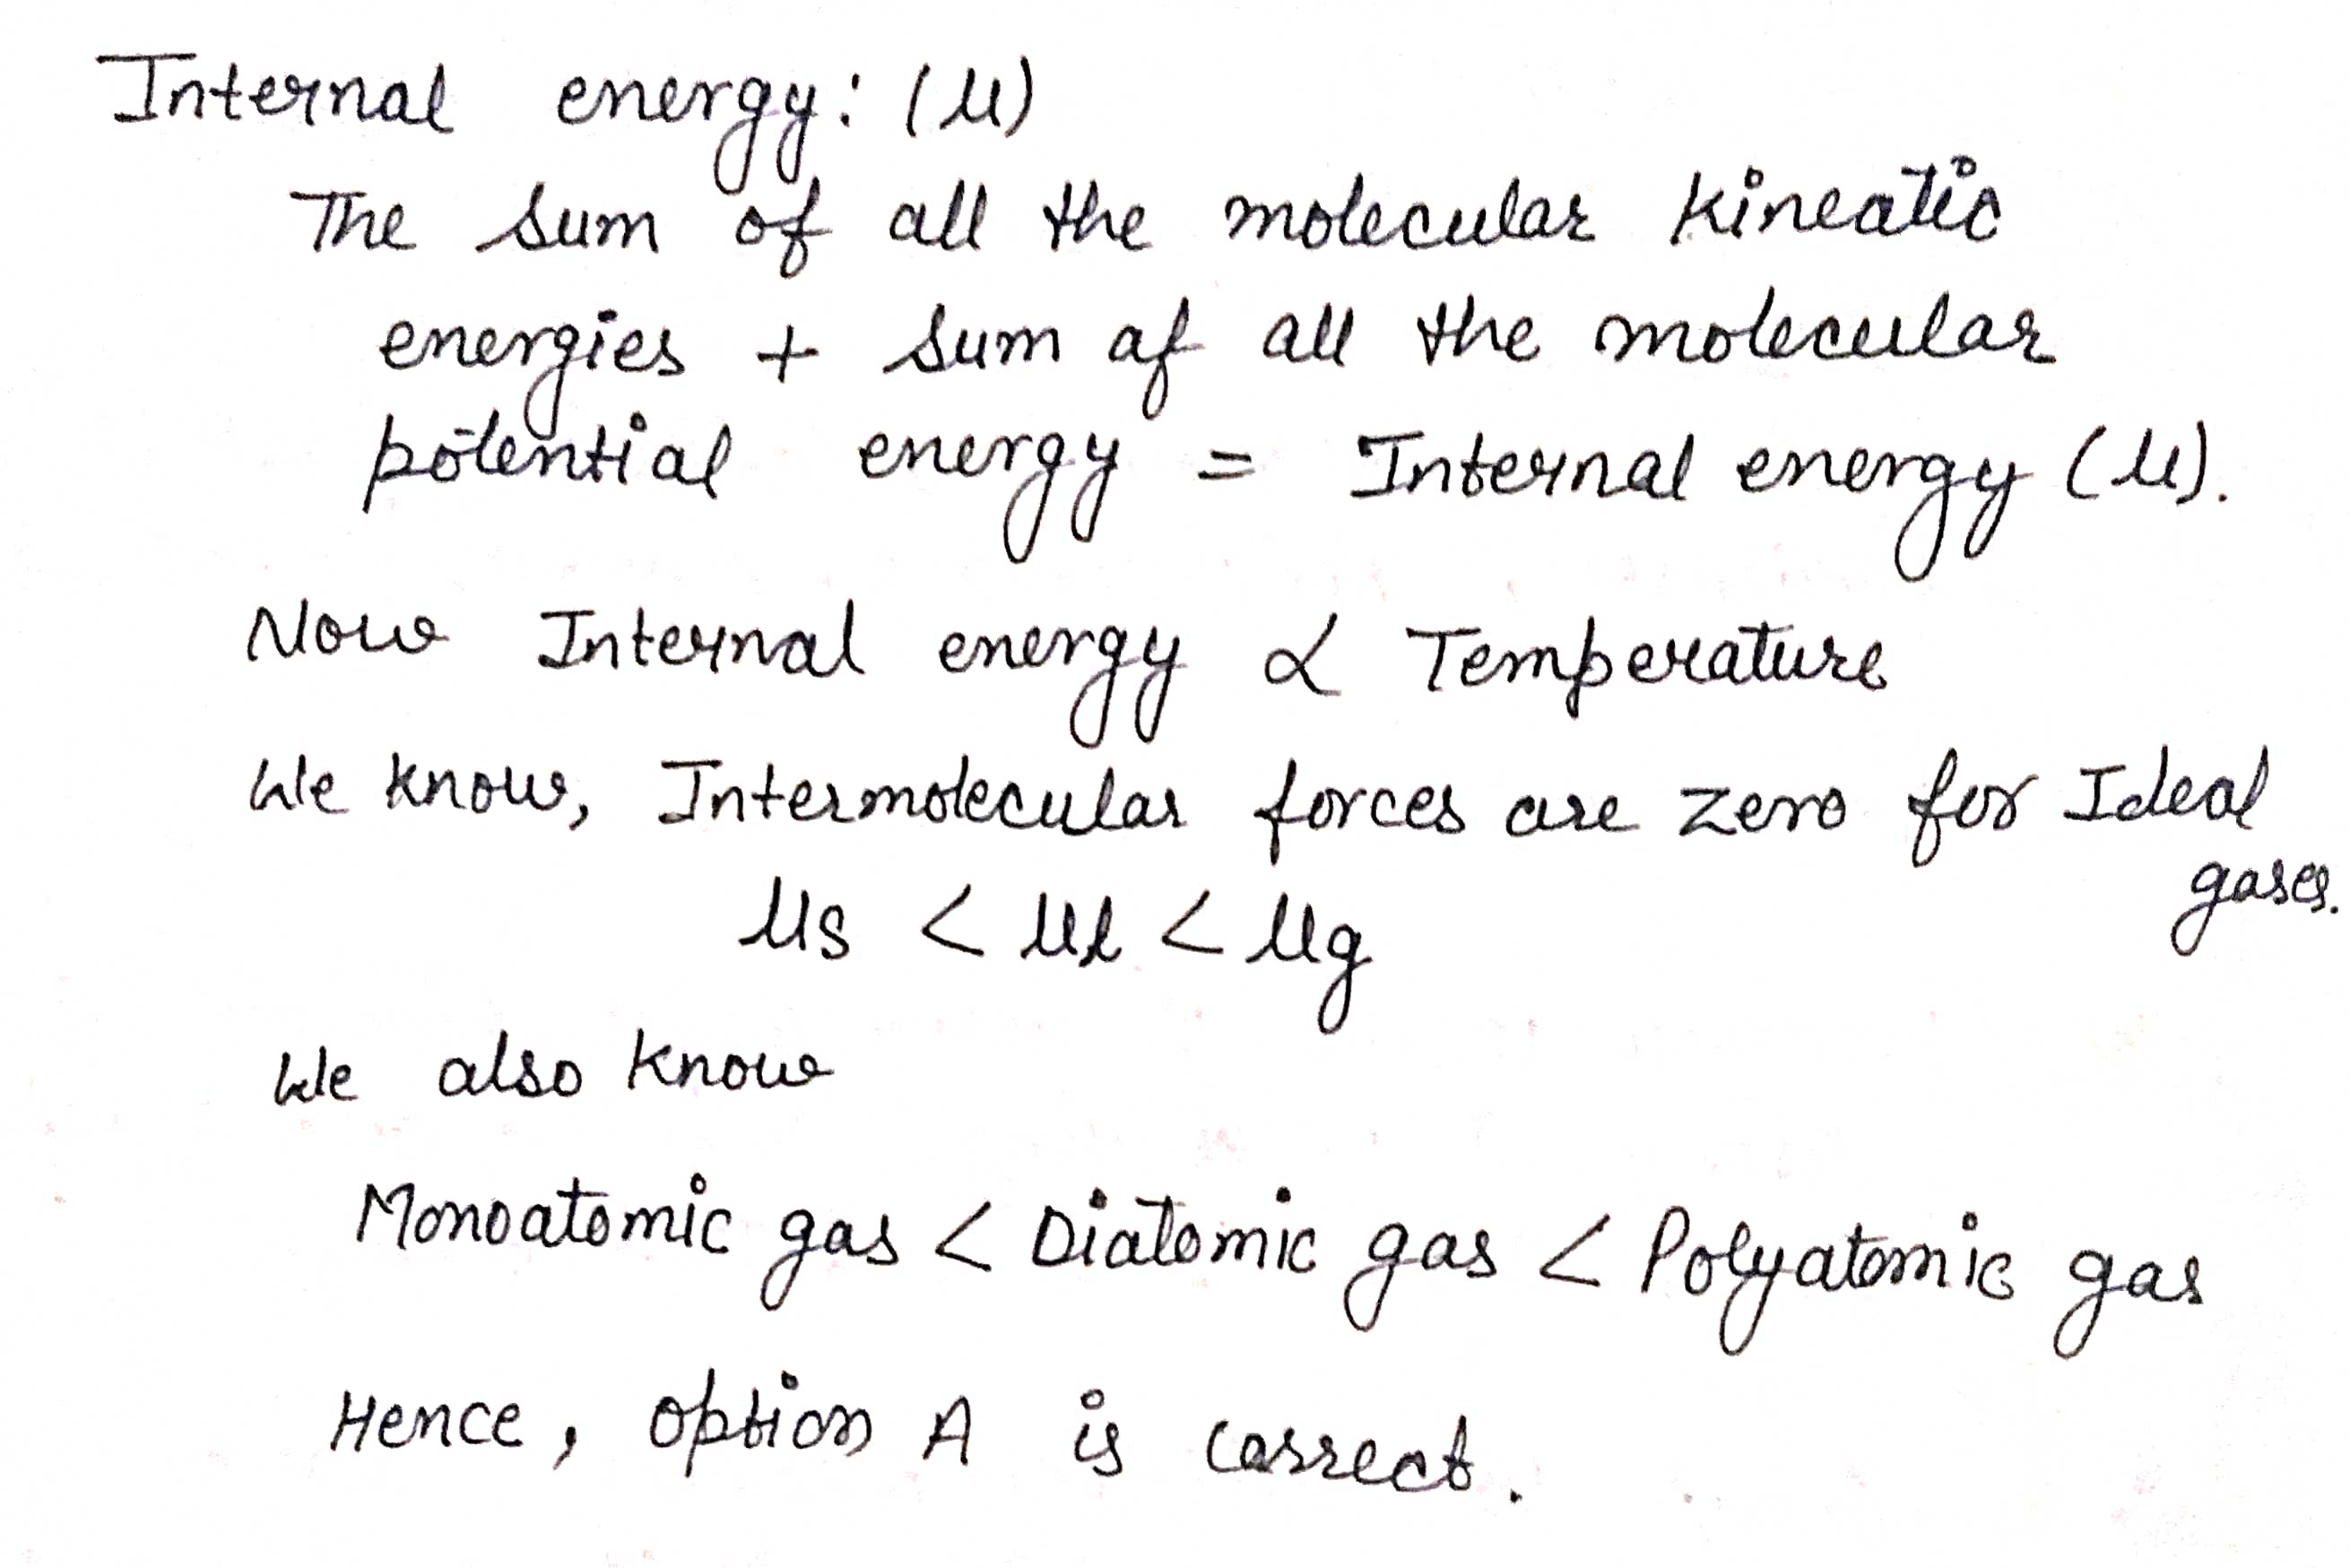 Internal energy: (U)
The sum of all the molecular kineatic
energies + sum of all the molecular
potential energy = Internal energy (U).
Now Internal energy ∝ Temperature
We know, Intermolecular forces are zero for Ideal
gases.
Us < Ul < Ug
We also know
Monoatomic gas < Diatomic gas < Polyatomic gas
Hence, option A is correct.